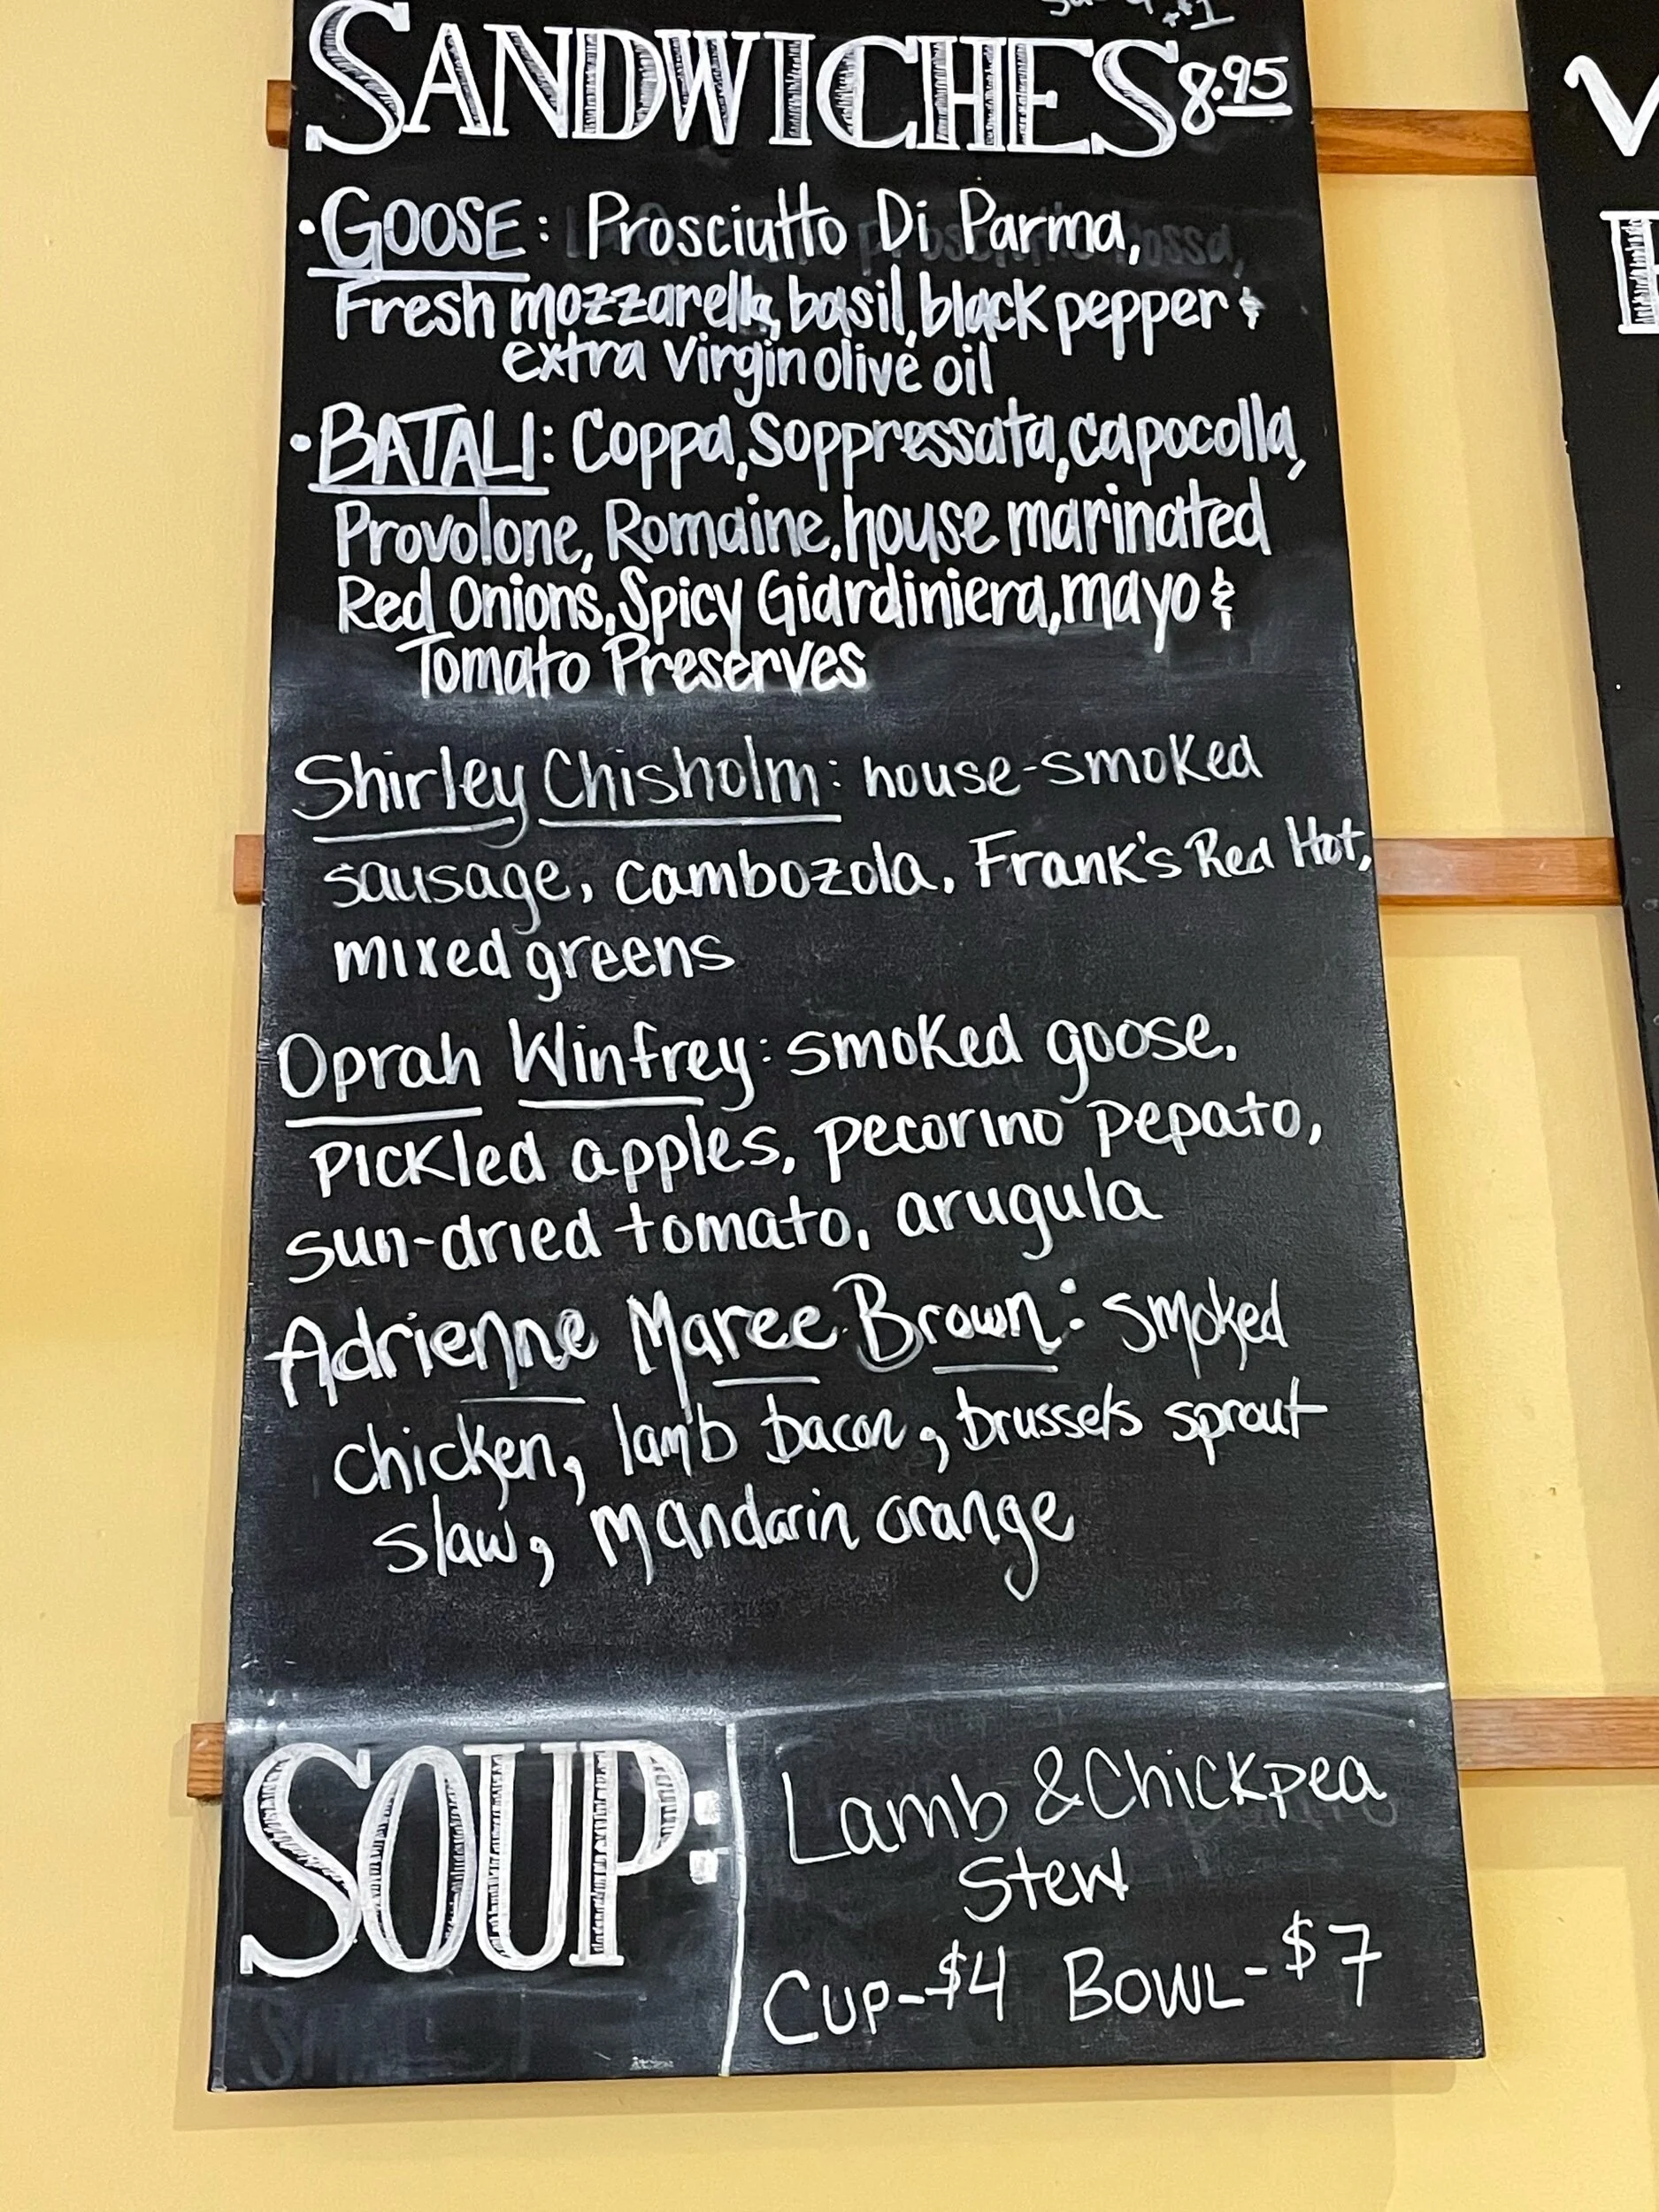 SANDWICHES 8.95
• GOOSE: Prosciutto Di Parma,
Fresh mozzarella, basil, black pepper &
extra virgin olive oil
• BATALI: Coppa, Soppressata, capocolla,
Provolone, Romaine, house marinated
Red Onions, Spicy Giardiniera, mayo &
Tomato Preserves
Shirley Chisholm: house-smoked
sausage, cambozola, Frank's Red Hot,
mixed greens
Oprah Winfrey: smoked goose,
pickled apples, pecorino pepato,
sun-dried tomato, arugula
Adrienne Maree Brown: smoked
chicken, lamb bacon, brussels sprout
slaw, mandarin orange
SOUP:
Lamb & Chickpea
Stew
Cup-$4 Bowl-$7